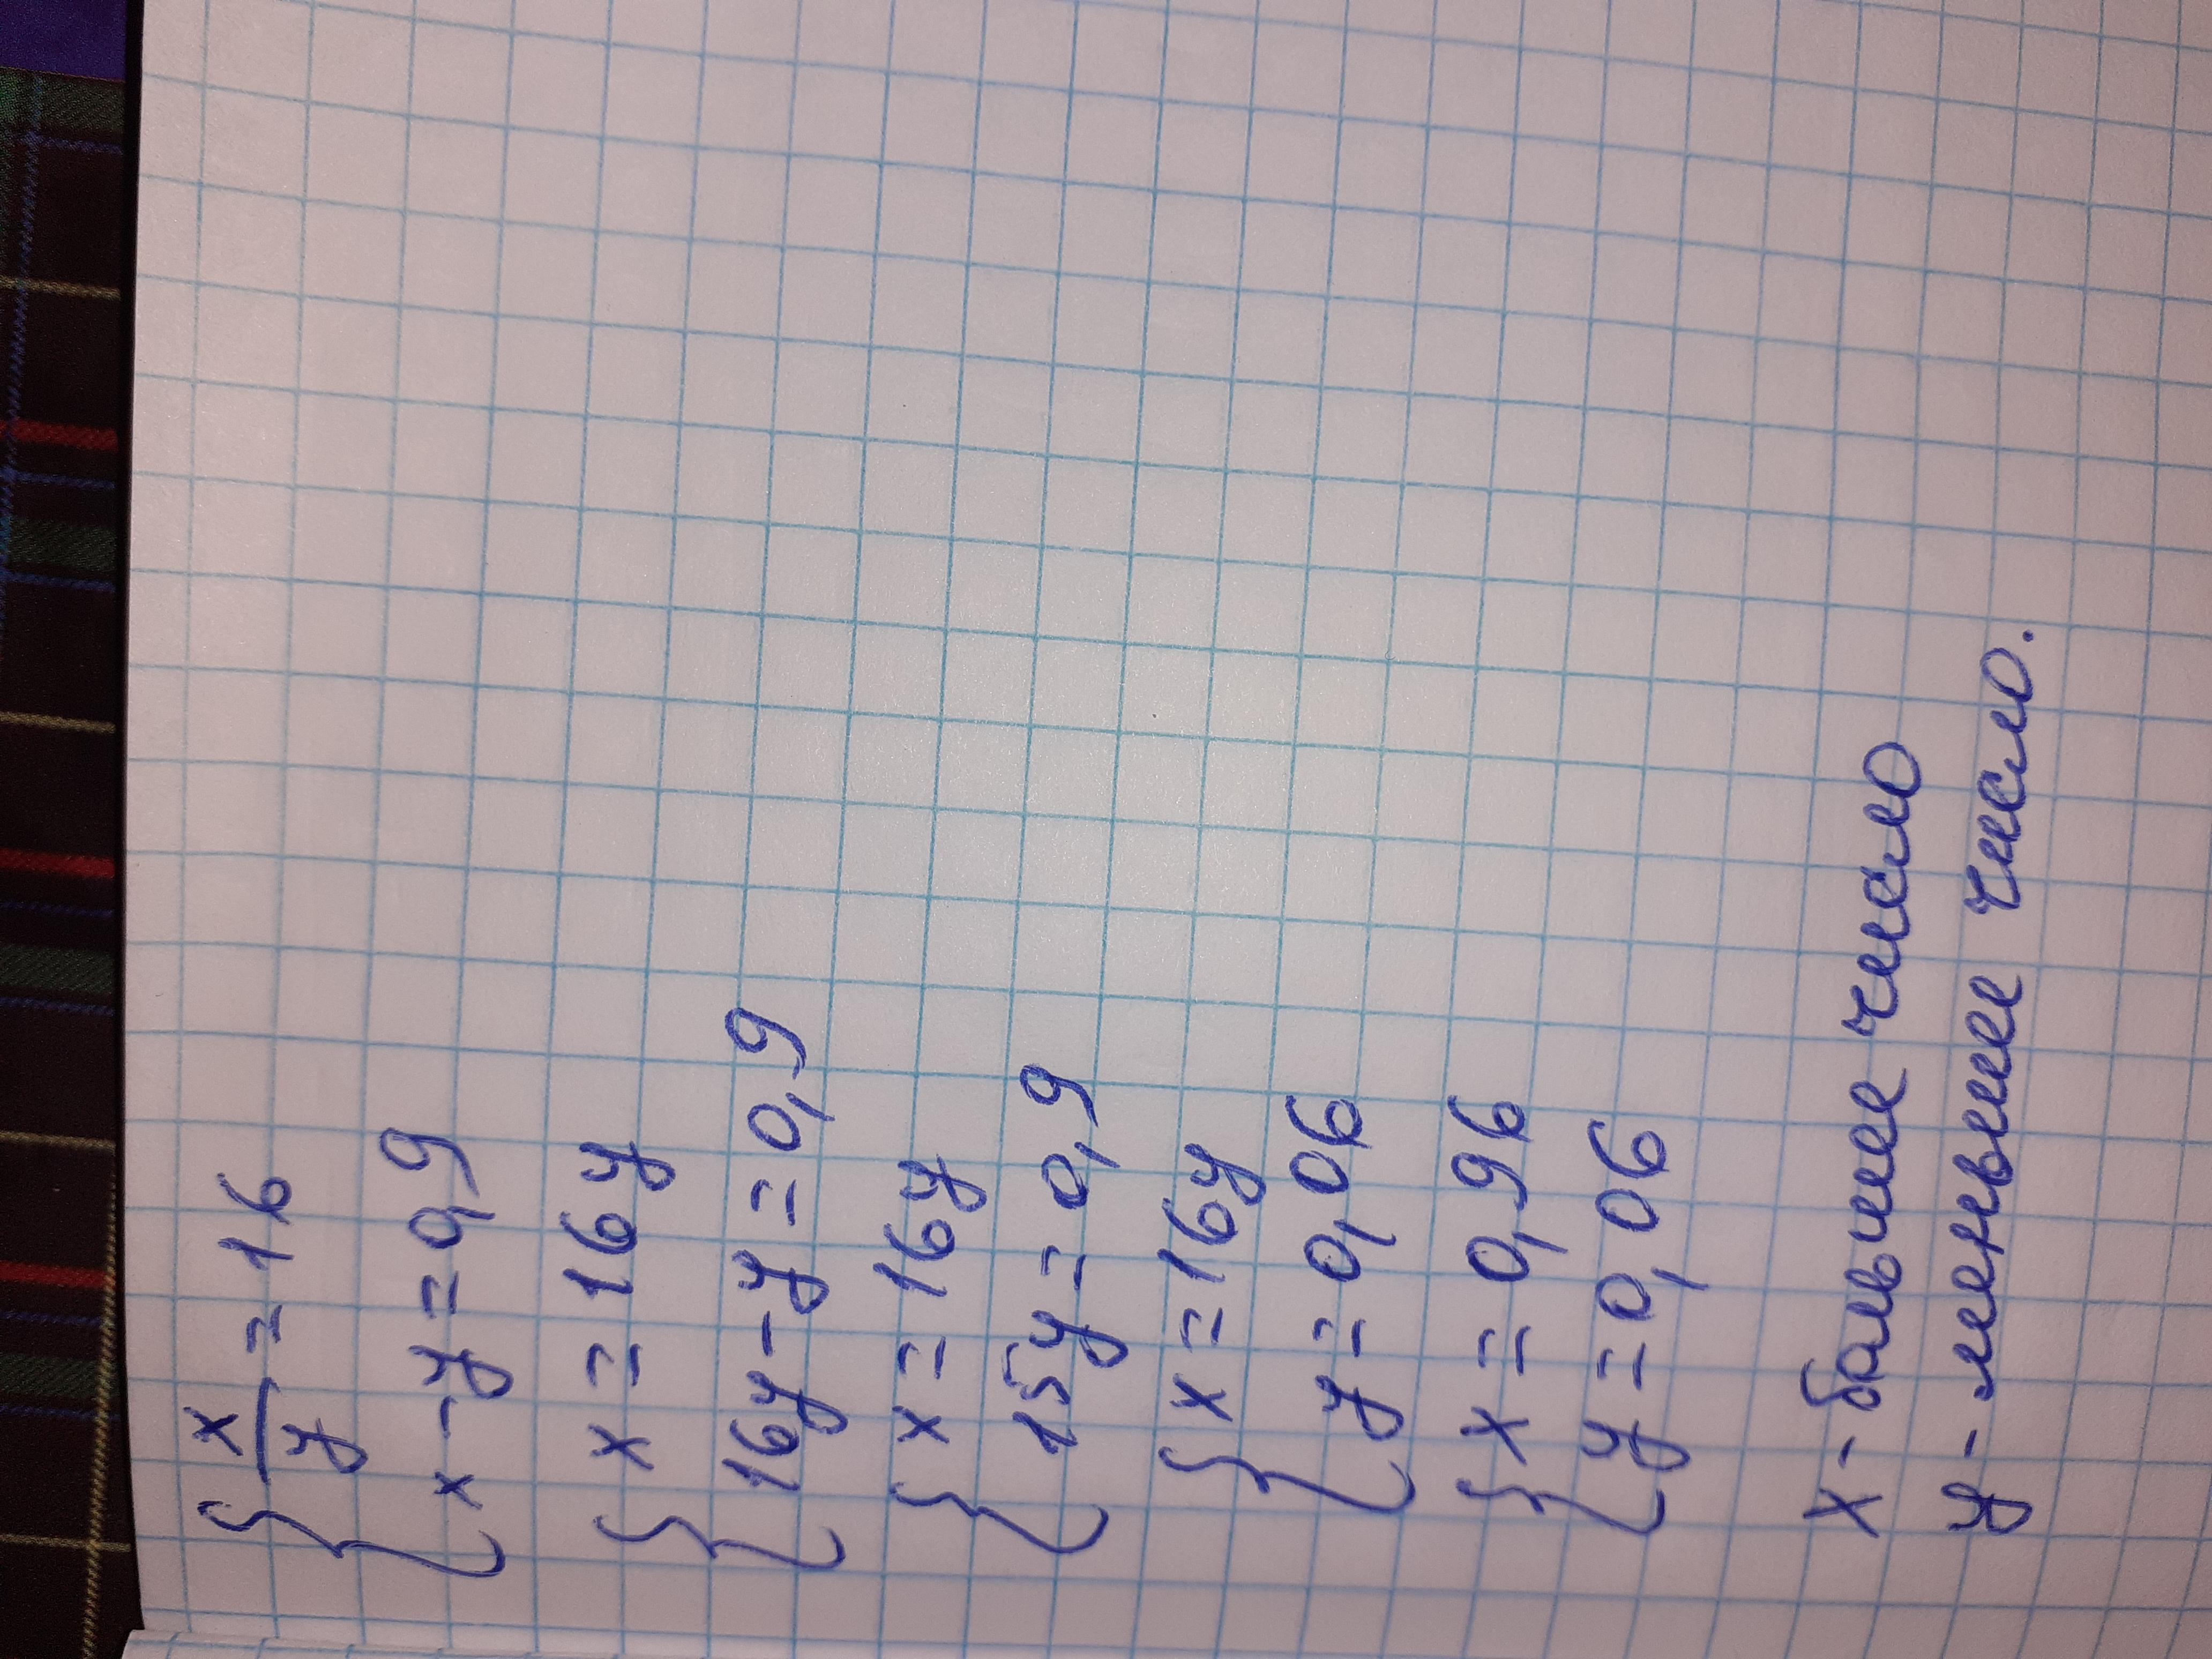 { x/y = 16
x - y = 0,9
{ x = 16y
16y - y = 0,9
{ x = 16y
15y = 0,9
{ x = 16y
y = 0,06
{ x = 0,96
y = 0,06
x - большее число
y - меньшее число.